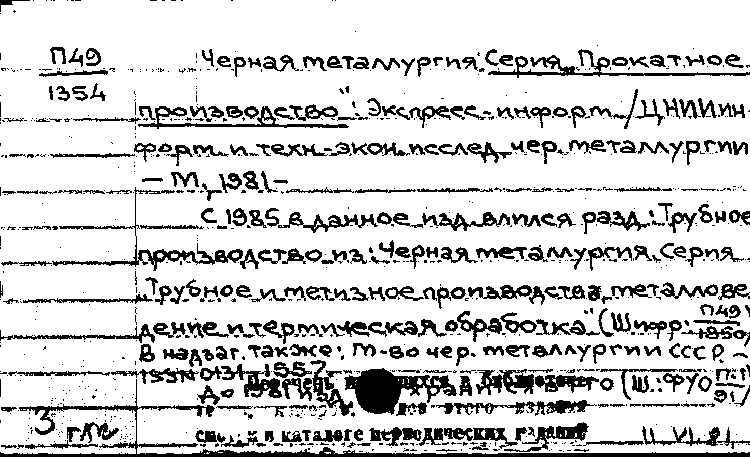 П49
1354
Черная металлургия. Серия „Прокатное
производство": Экспресс-информ. / ЦНИИин-
форм. и техн.-экон. исслед. чер. металлургии
— М., 1981 –
С 1985 в данное изд. влился разд.: Трубное
производство из: Черная металлургия. Серия
„Трубное и метизное производства, металлове-
дение и термическая обработка" (Шифр: П49
1350
В надзаг. также: М-во чер. металлургии СССР. –
ISSN 0131-1557.
До 1981 изд. хранится в (Ш.: ФУО
91/
Перечень в библиотеке
этого издания
см. в каталоге периодических изданий
3 11 VI 81